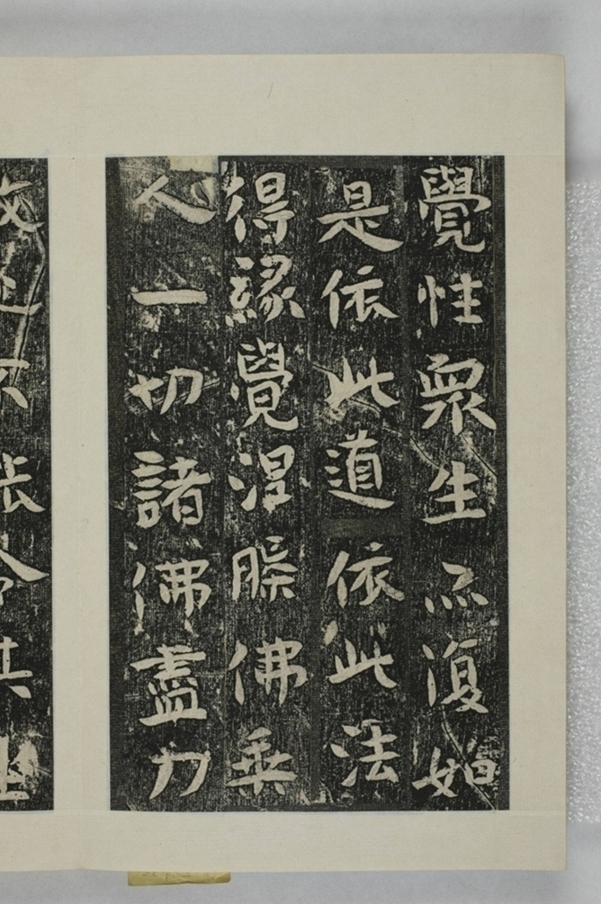 覺性衆生亦復如
是依此道依此法
得緣覺涅槃佛乘
人一切諸佛盡力